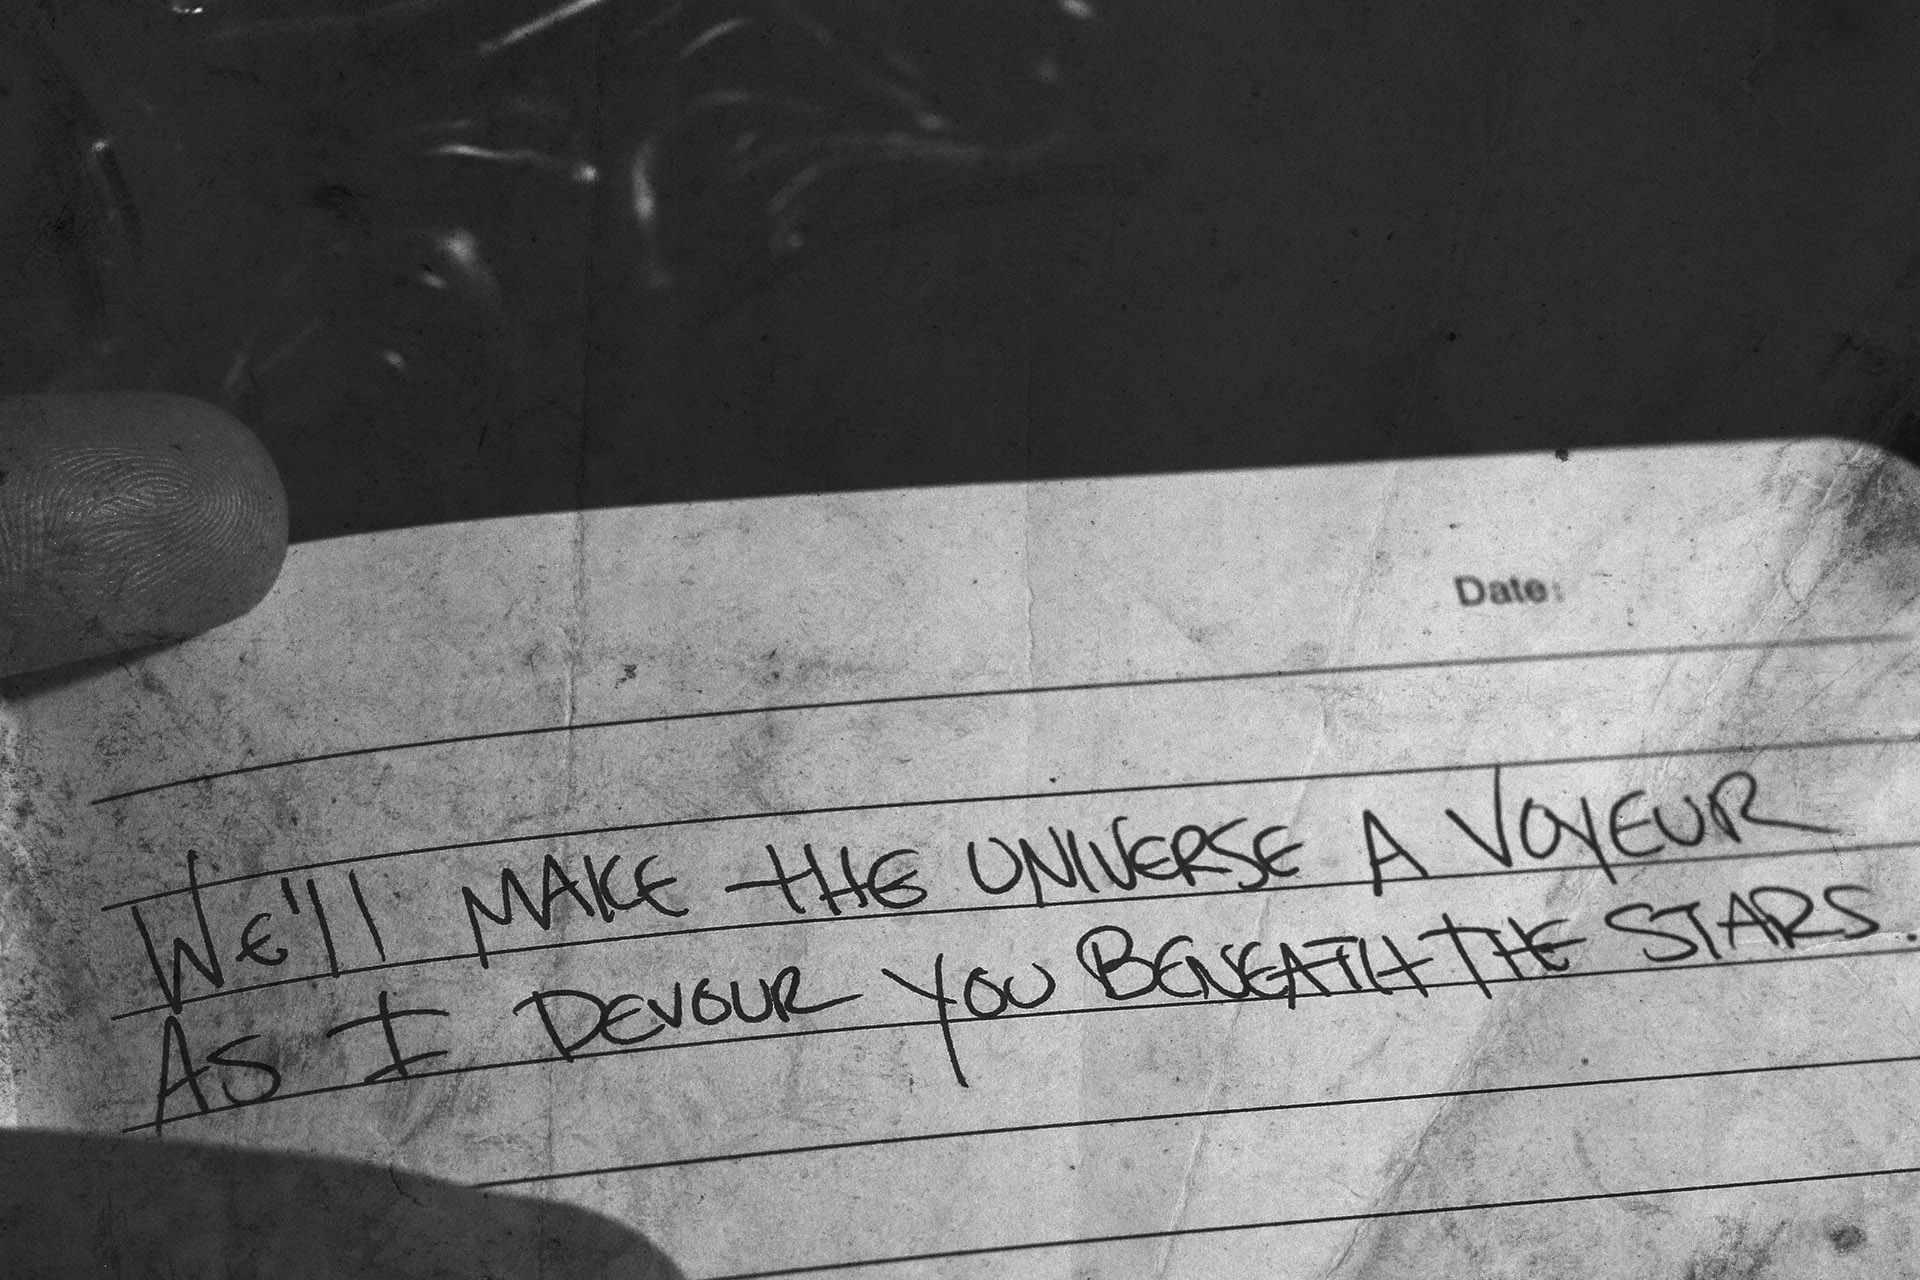 Date:
We'll MAKE THE UNIVERSE A VOYEUR
AS I DEVOUR YOU BENEATH THE STARS.